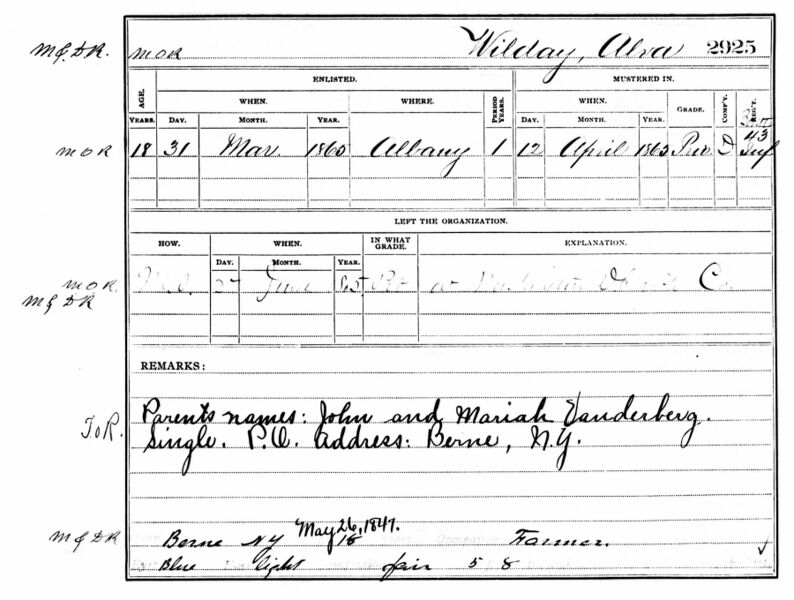 M&DR. MOR Wilday, Alva 2925
ENLISTED. MUSTERED IN.
AGE. WHEN. WHERE. PERIOD YEARS. WHEN. GRADE. COMP'Y. REG'T.
YEARS. DAY. MONTH. YEAR. DAY. MONTH. YEAR.
43
MOR 18 31 Mar 1865 Albany 1 12 April 1865 Priv. D Inf
LEFT THE ORGANIZATION.
HOW. WHEN. IN WHAT GRADE. EXPLANATION.
DAY. MONTH. YEAR.
MOR. M.O. 27 June 65 at Co.
M&DR
REMARKS:
Parents names: John and Mariah Vanderberg.
ToR. Single. P.O. Address: Berne, N.Y.
May 26, 1847.
M&DR Berne NY 18 Farmer.
Blue light fair 5 8